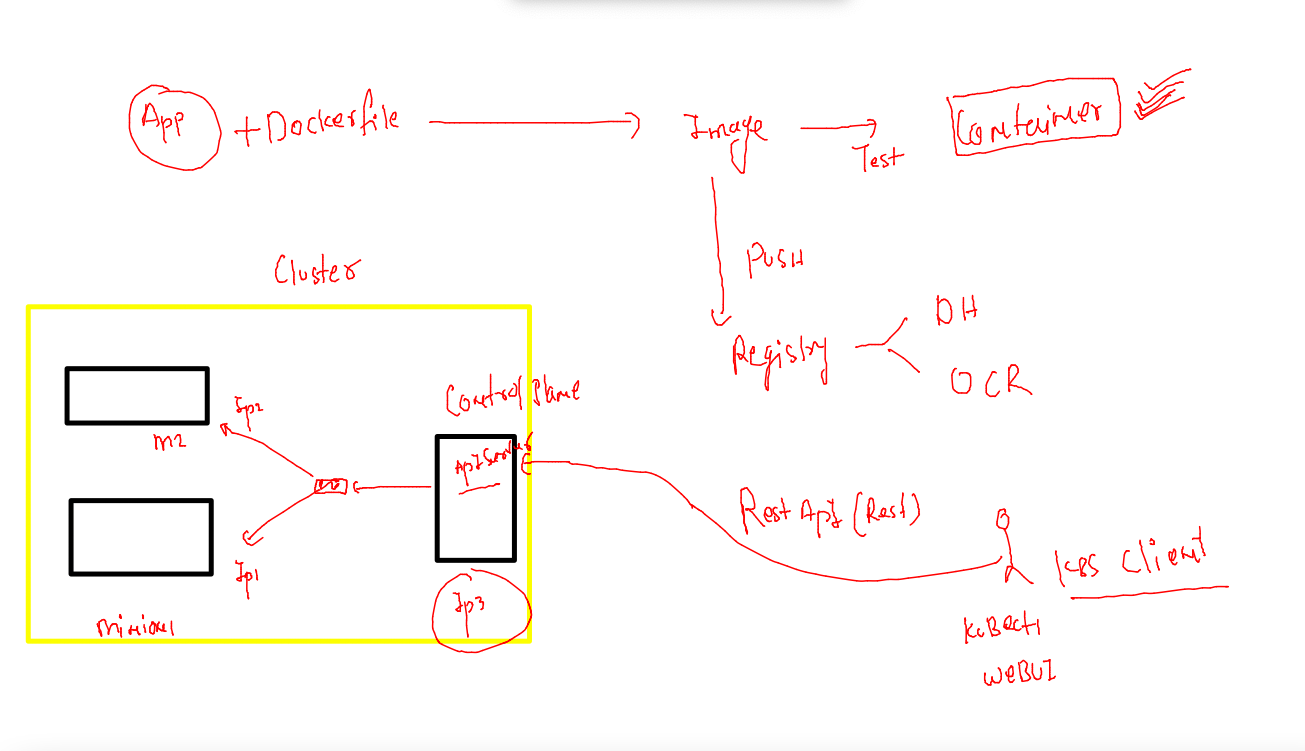 App + Dockerfile
Image
Test
Container
PUSH
Registry
DH
OCR
Cluster
Control Plane
Api Server
Ip2
m2
Ip1
minion1
Ip3
Rest ApI (Rest)
k8s client
kuBectl
weBUI